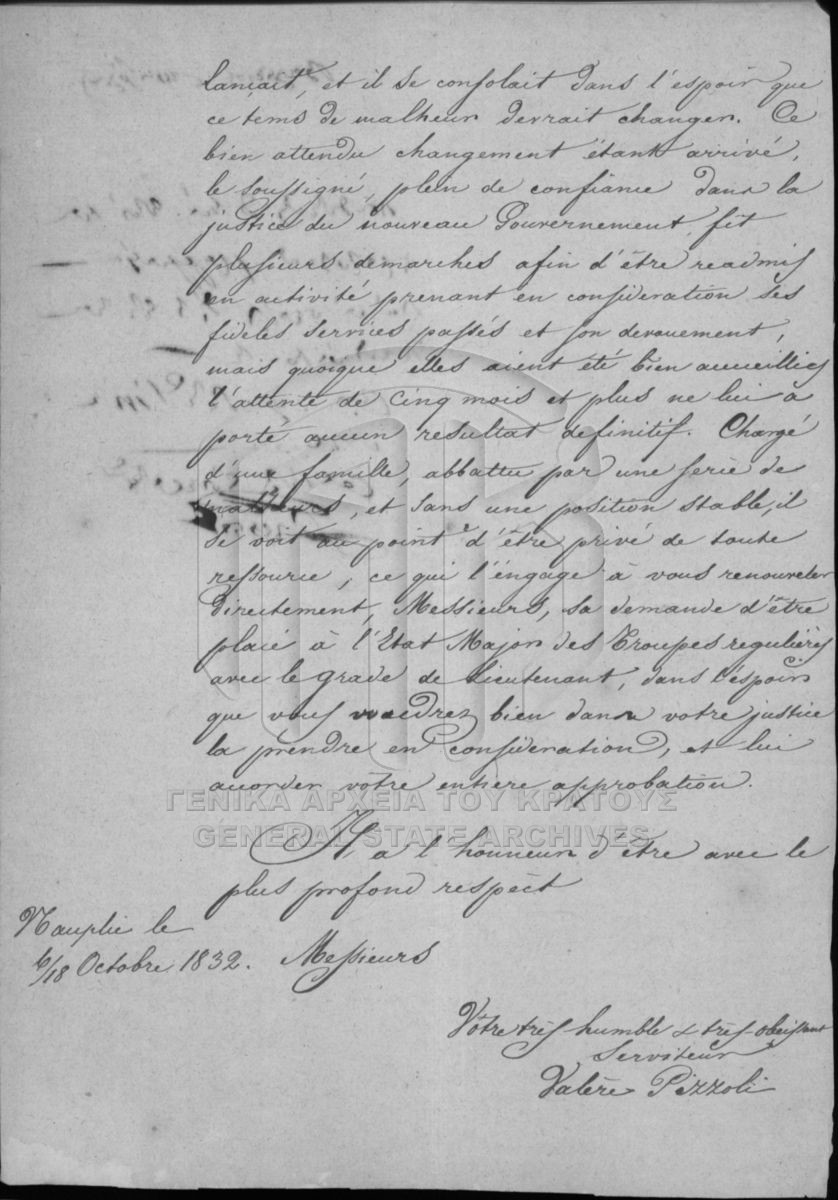 lançait, et il se consolait dans l'espoir que
ce tems de malheur devrait changer. Ce
bien attendu changement étant arrivé,
le soussigné, plein de confiance dans la
justice du nouveau Gouvernement, fit
plusieurs demarches afin d'être readmis
en activité prenant en consideration ses
fideles services passés et son devouement,
mais quoique elles aient été bien accueillies
l'attente de cinq mois et plus ne lui a
porté aucun resultat definitif. Chargé
d'une famille, abbattu par une serie de
malheurs, et sans une position stable, il
se voit au point d'être privé de toute
ressource, ce qui l'engage à vous renouveler
directement, Messieurs, sa demande d'être
placé à l'Etat Major des Troupes regulières
avec le grade de Lieutenant, dans l'éspoir
que vous voudrez bien dans votre justice
la prendre en consideration, et lui
accorder vôtre entière approbation.
ΓΕΝΙΚΑ ΑΡΧΕΙΑ ΤΟΥ ΚΡΑΤΟΥΣ
GENERAL STATE ARCHIVES
Il a l'honneur d'être avec le
plus profond respèct
Nauplie le
6/18 Octobre 1832. Messieurs
Vôtre très humble & très obeissant
Serviteur
Valère Pizzoli